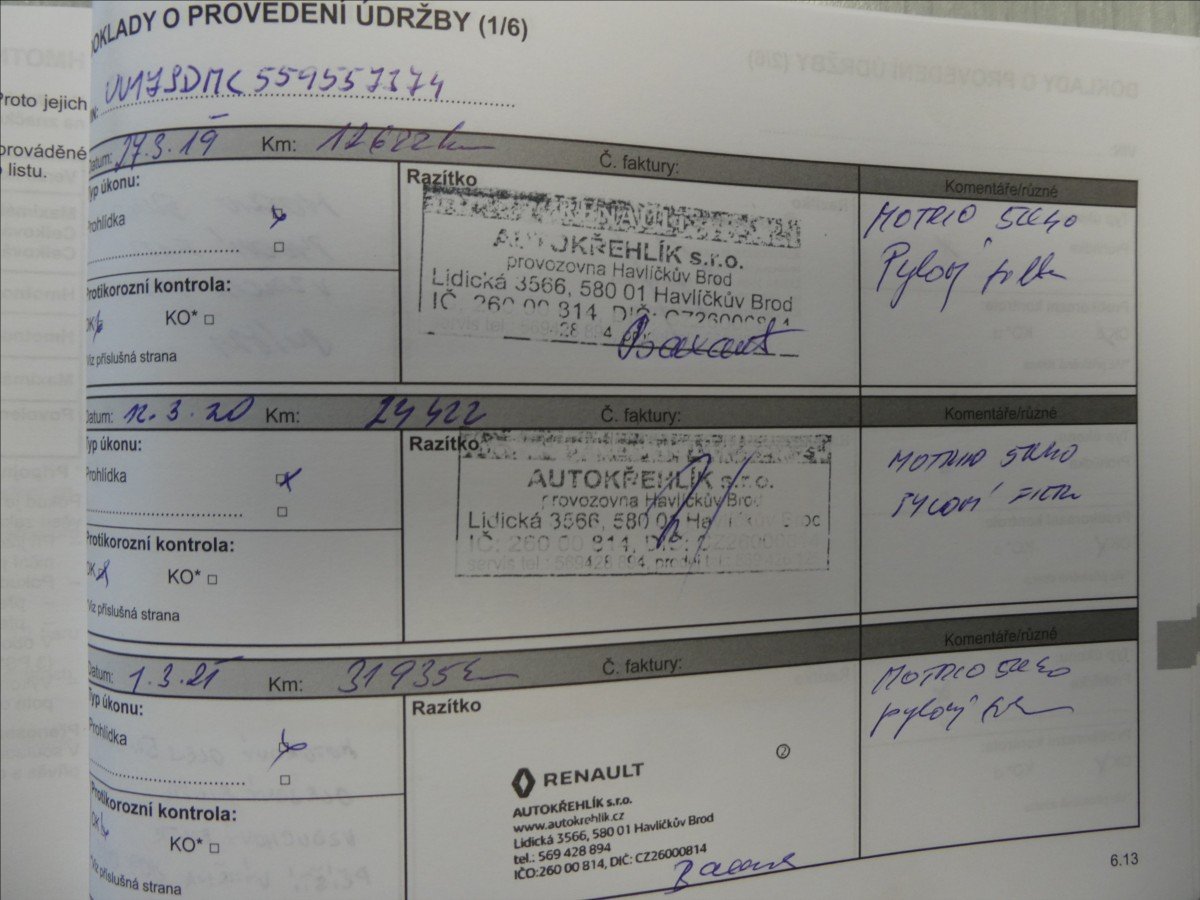 DOKLADY O PROVEDENÍ ÚDRŽBY (1/6)
Proto jejich
prováděné
listu.
Datum: 27.3.19 Km: 12622km Č. faktury:
Typ úkonu:
Razítko
Komentáře/různé
Prohlídka
MOTRIO 5W40
Pylový filtr
AUTOKŘEHLÍK s.r.o.
provozovna Havlíčkův Brod
Lidická 3566, 580 01 Havlíčkův Brod
IČ: 260 00 814, DIČ: CZ26000814
Protikorozní kontrola:
OK KO*
Viz příslušná strana
Datum: 12.3.20 Km: 24422 Č. faktury:
Typ úkonu:
Razítko
Komentáře/různé
Prohlídka
MOTRIO 5W40
AUTOKŘEHLÍK s.r.o.
provozovna Havlíčkův Brod
Lidická 3566, 580 01 Ha
IČ: 260 00 814, DIČ: CZ26000814
servis tel.: 569428 894,
Protikorozní kontrola:
OK KO*
Viz příslušná strana
Datum: 1.3.21 Km: 31935km Č. faktury:
Typ úkonu:
Razítko
Komentáře/různé
Prohlídka
MOTRIO 5W40
pylový
2
RENAULT
AUTOKŘEHLÍK s.r.o.
www.autokrehlik.cz
Lidická 3566, 580 01 Havlíčkův Brod
tel.: 569 428 894
IČO:260 00 814, DIČ: CZ26000814
Protikorozní kontrola:
OK KO*
Viz příslušná strana
6.13